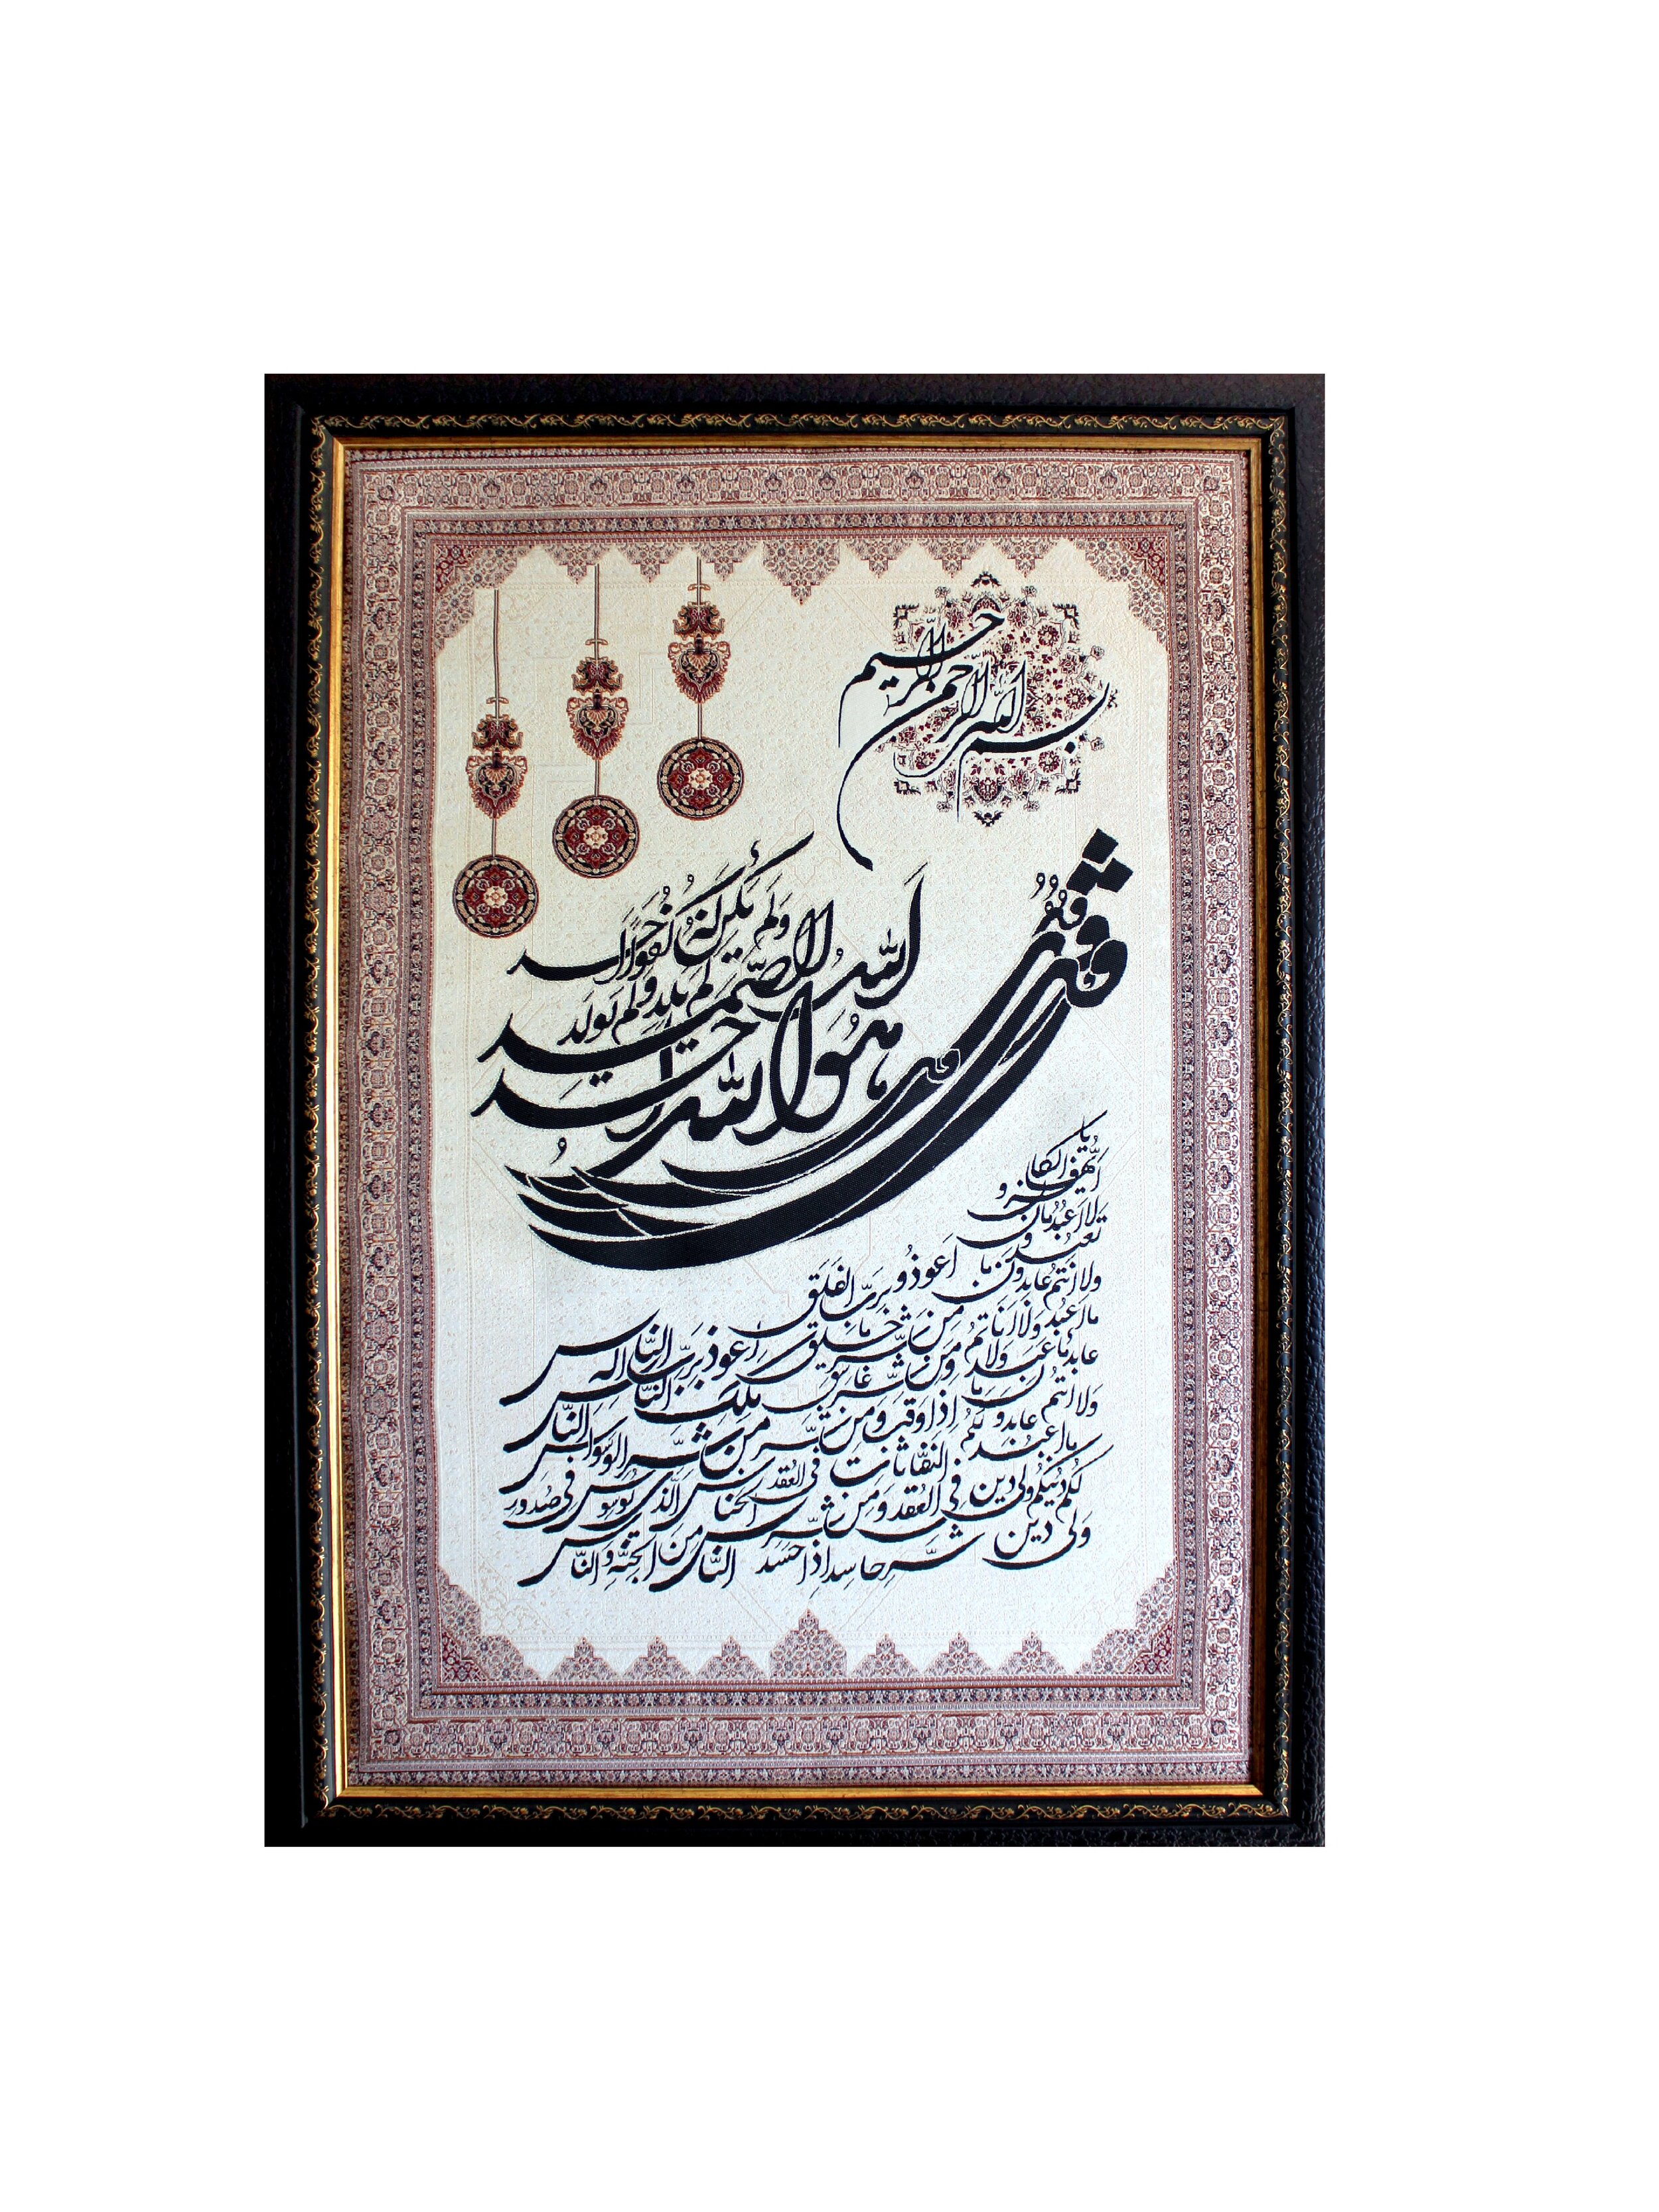 بسم الله الرحمن الرحيم
قل قل قل قل
هُوَ الله اَحَد
اَللهُ الصَّمَد
لَم يَلِد وَلَم يولَد
وَلَم يَكُن لَهُ كُفُواً اَحَد
يا
اَيُّهَا الكا
فرو
ن لا اَعبُدُ ما
تَعبُدو
ن ولا انتُم عابِدونَ ما
اَعبُد وَلا اَنا
عابِدٌ ما عَبَدتُم
وَلا انتم عابدونَ ما
اَعبُد لَكُم
لَكُم دينُكُم وَلِيَ دين
وَلِيَ دين
اَعوذُ بِرَبِّ الفَلَق
مِن شَرِّ ما خَلَق
وَمِن شَرِّ غاسِق
اِذا وَقَبَ وَمِن شَرِّ
النَّفّاثاتِ فِى العُقَد
فِى العُقَد وَمِن شَرِّ
شَرِّ حاسِد اِذا حَسَد
اَعوذُ بِرَبِّ النّاس
مَلِكِ النّاس اله
النّاس
مِن شَرِّ الوَسواس
الخنّاس الَّذى يُوَسوِس فى صُدور
النّاس مِنَ الجِنَّةِ وَالنّاس